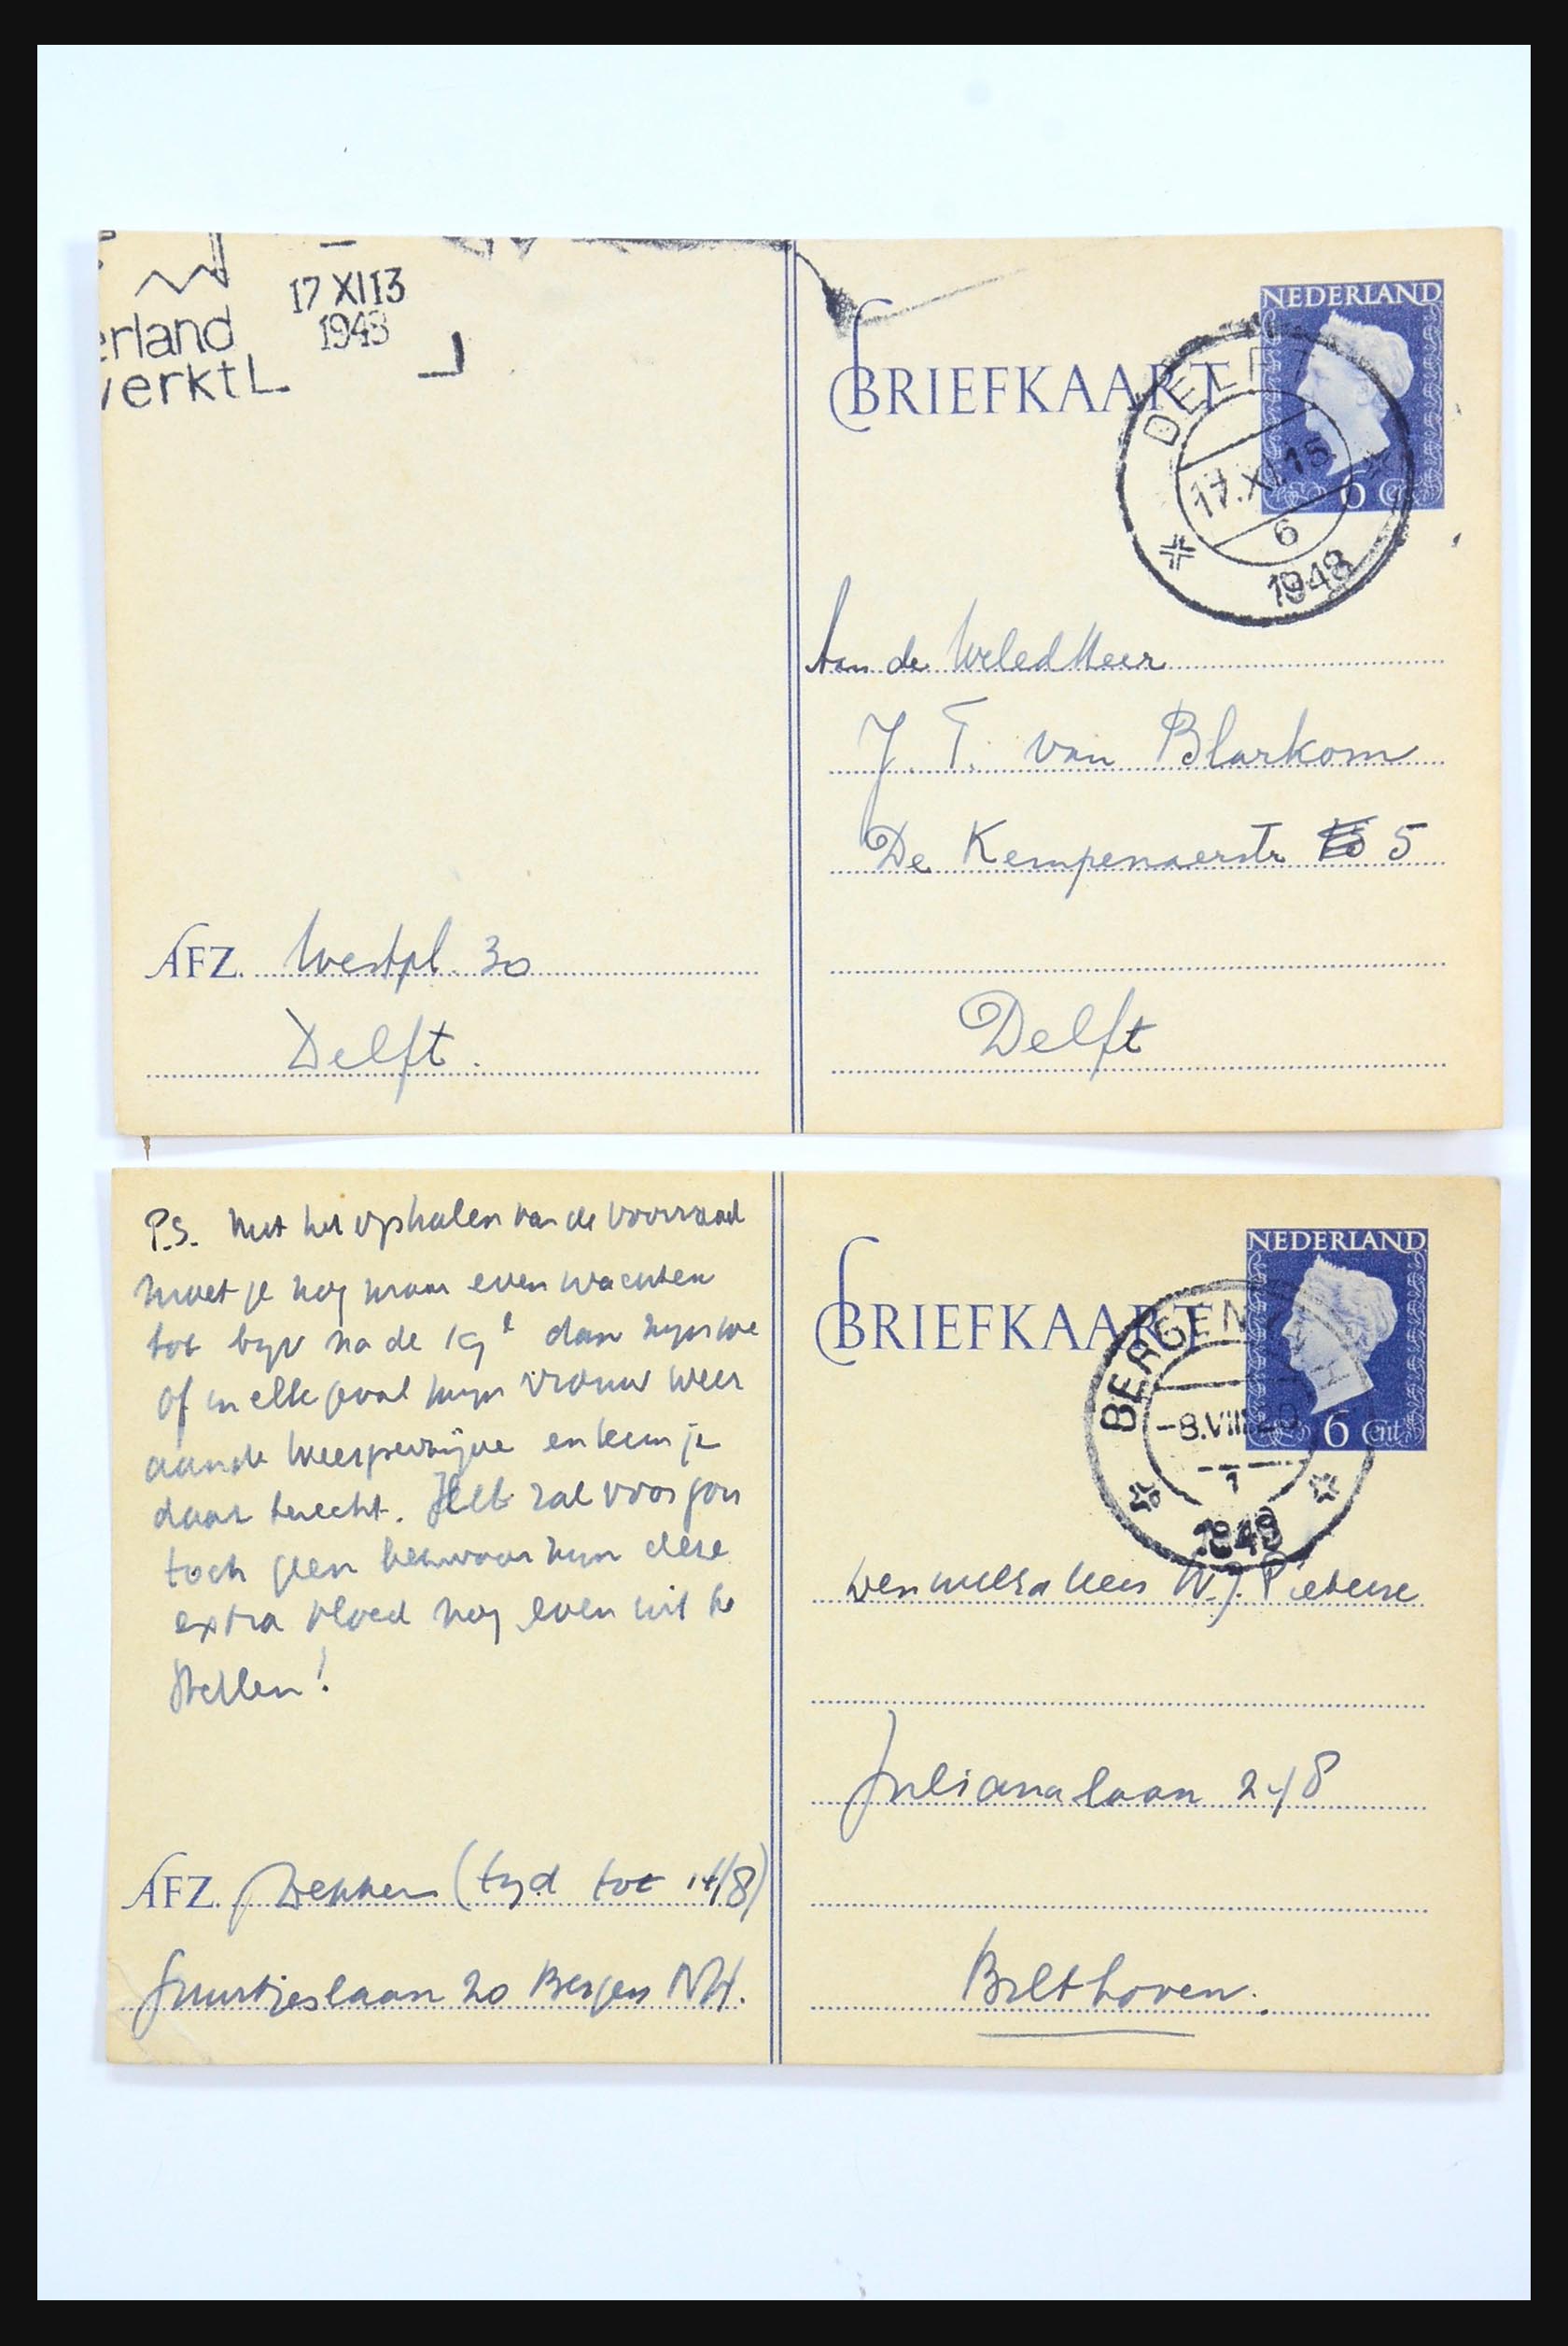 erland
werkt
17 XI 13
1948
BRIEFKAART
NEDERLAND
6 Cnt
DELFT
17.XI.15
6
1948
Aan de WeledHeer
J. T. van Blarkom
De Kempenaerstr 5
Delft
AFZ. Westpl. 30
Delft.
P.S. Met het ophalen van de voorraad
moet je nog maar even wachten
tot bijv na de 19e dan zijn we
of in elk geval mijn vrouw weer
aan de en kun je
daar terecht. Het zal voor jou
toch geen bezwaar zijn deze
extra vloed nog even uit te
stellen!
AFZ. Dekker (tijd tot 14/8)
Guurtjeslaan 20 Bergen NH.
BRIEFKAART
NEDERLAND
6 Cnt
BERGEN NH
-8.VIII
1
1949
Den weled heer W.J. Pieterse
Julianalaan 248
Bilthoven.